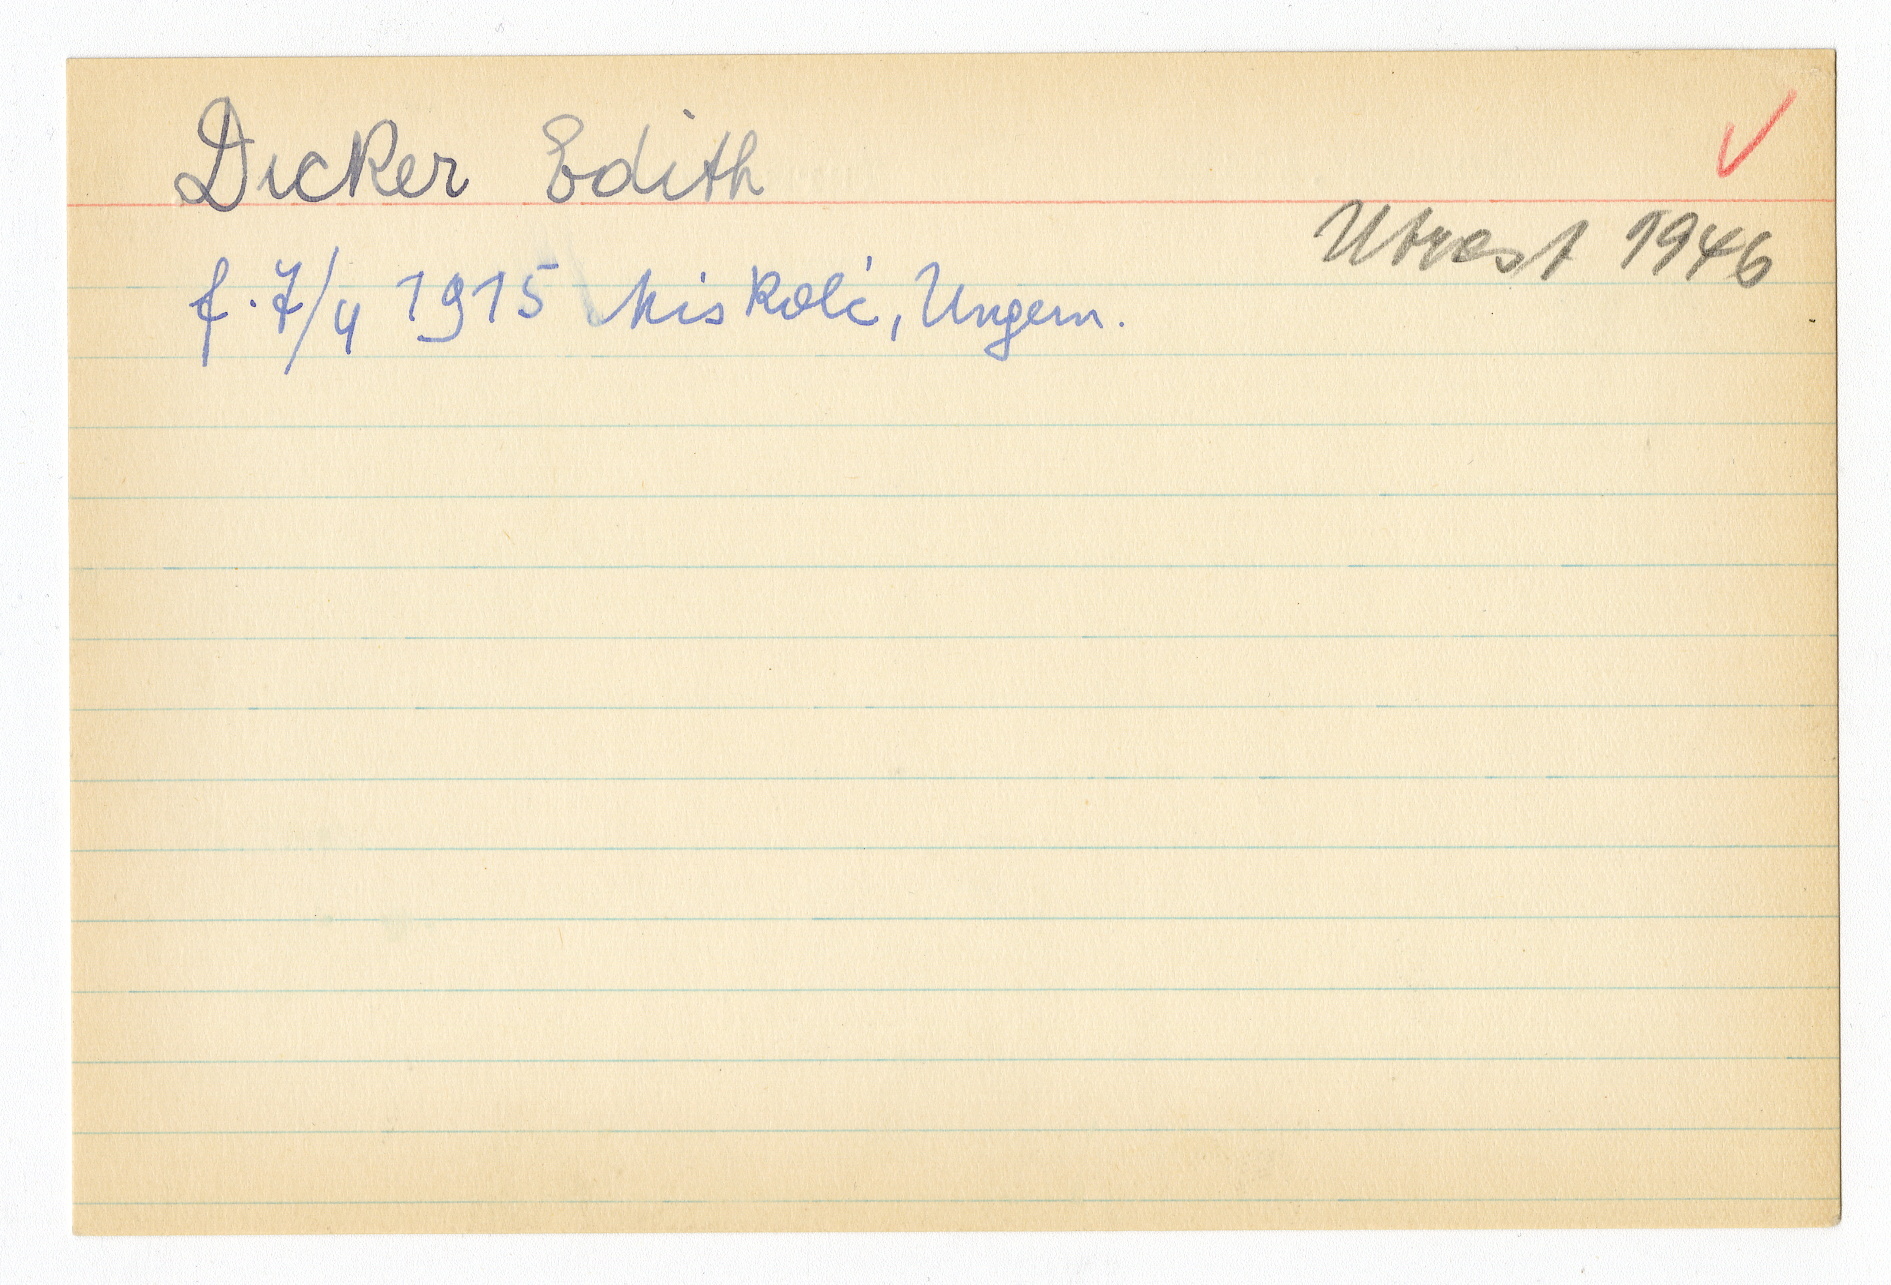 Dicker Edith
Utrest 1946
f. 7/4 1915 Miskolć, Ungern.